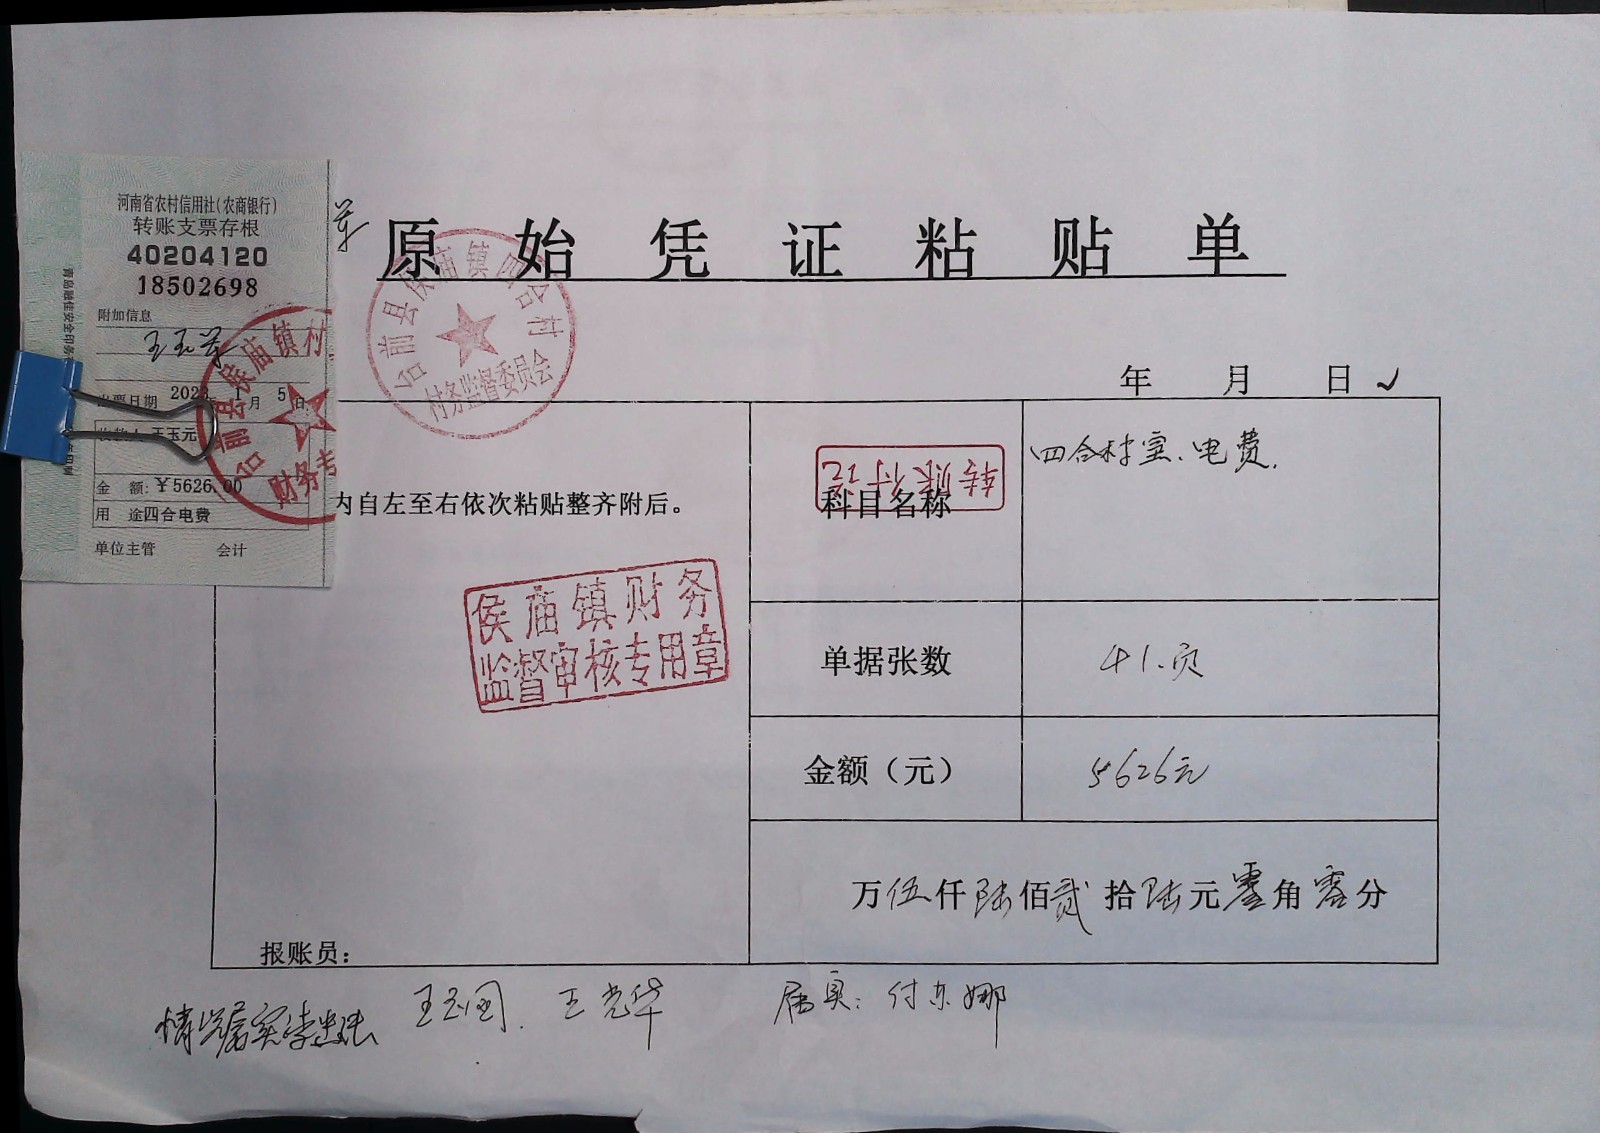 河南省农村信用社(农商银行)
转账支票存根
40204120
18502698
附加信息
出票日期 2023年 1月 5日
收款人 王玉元
金 额:￥5626.00
用 途四合电费
单位主管 会计
台前县侯庙镇村
财务专
原始凭证粘贴单
台前县侯庙镇四合村
村务监督委员会
年 月 日
内自左至右依次粘贴整齐附后。
侯庙镇财务
监督审核专用章
转账付讫
科目名称
四合村室、电费.
单据张数
41.页
金额（元）
5626元
万伍仟陆佰贰拾陆元零角零分
报账员：
王光华
属实：付东娜